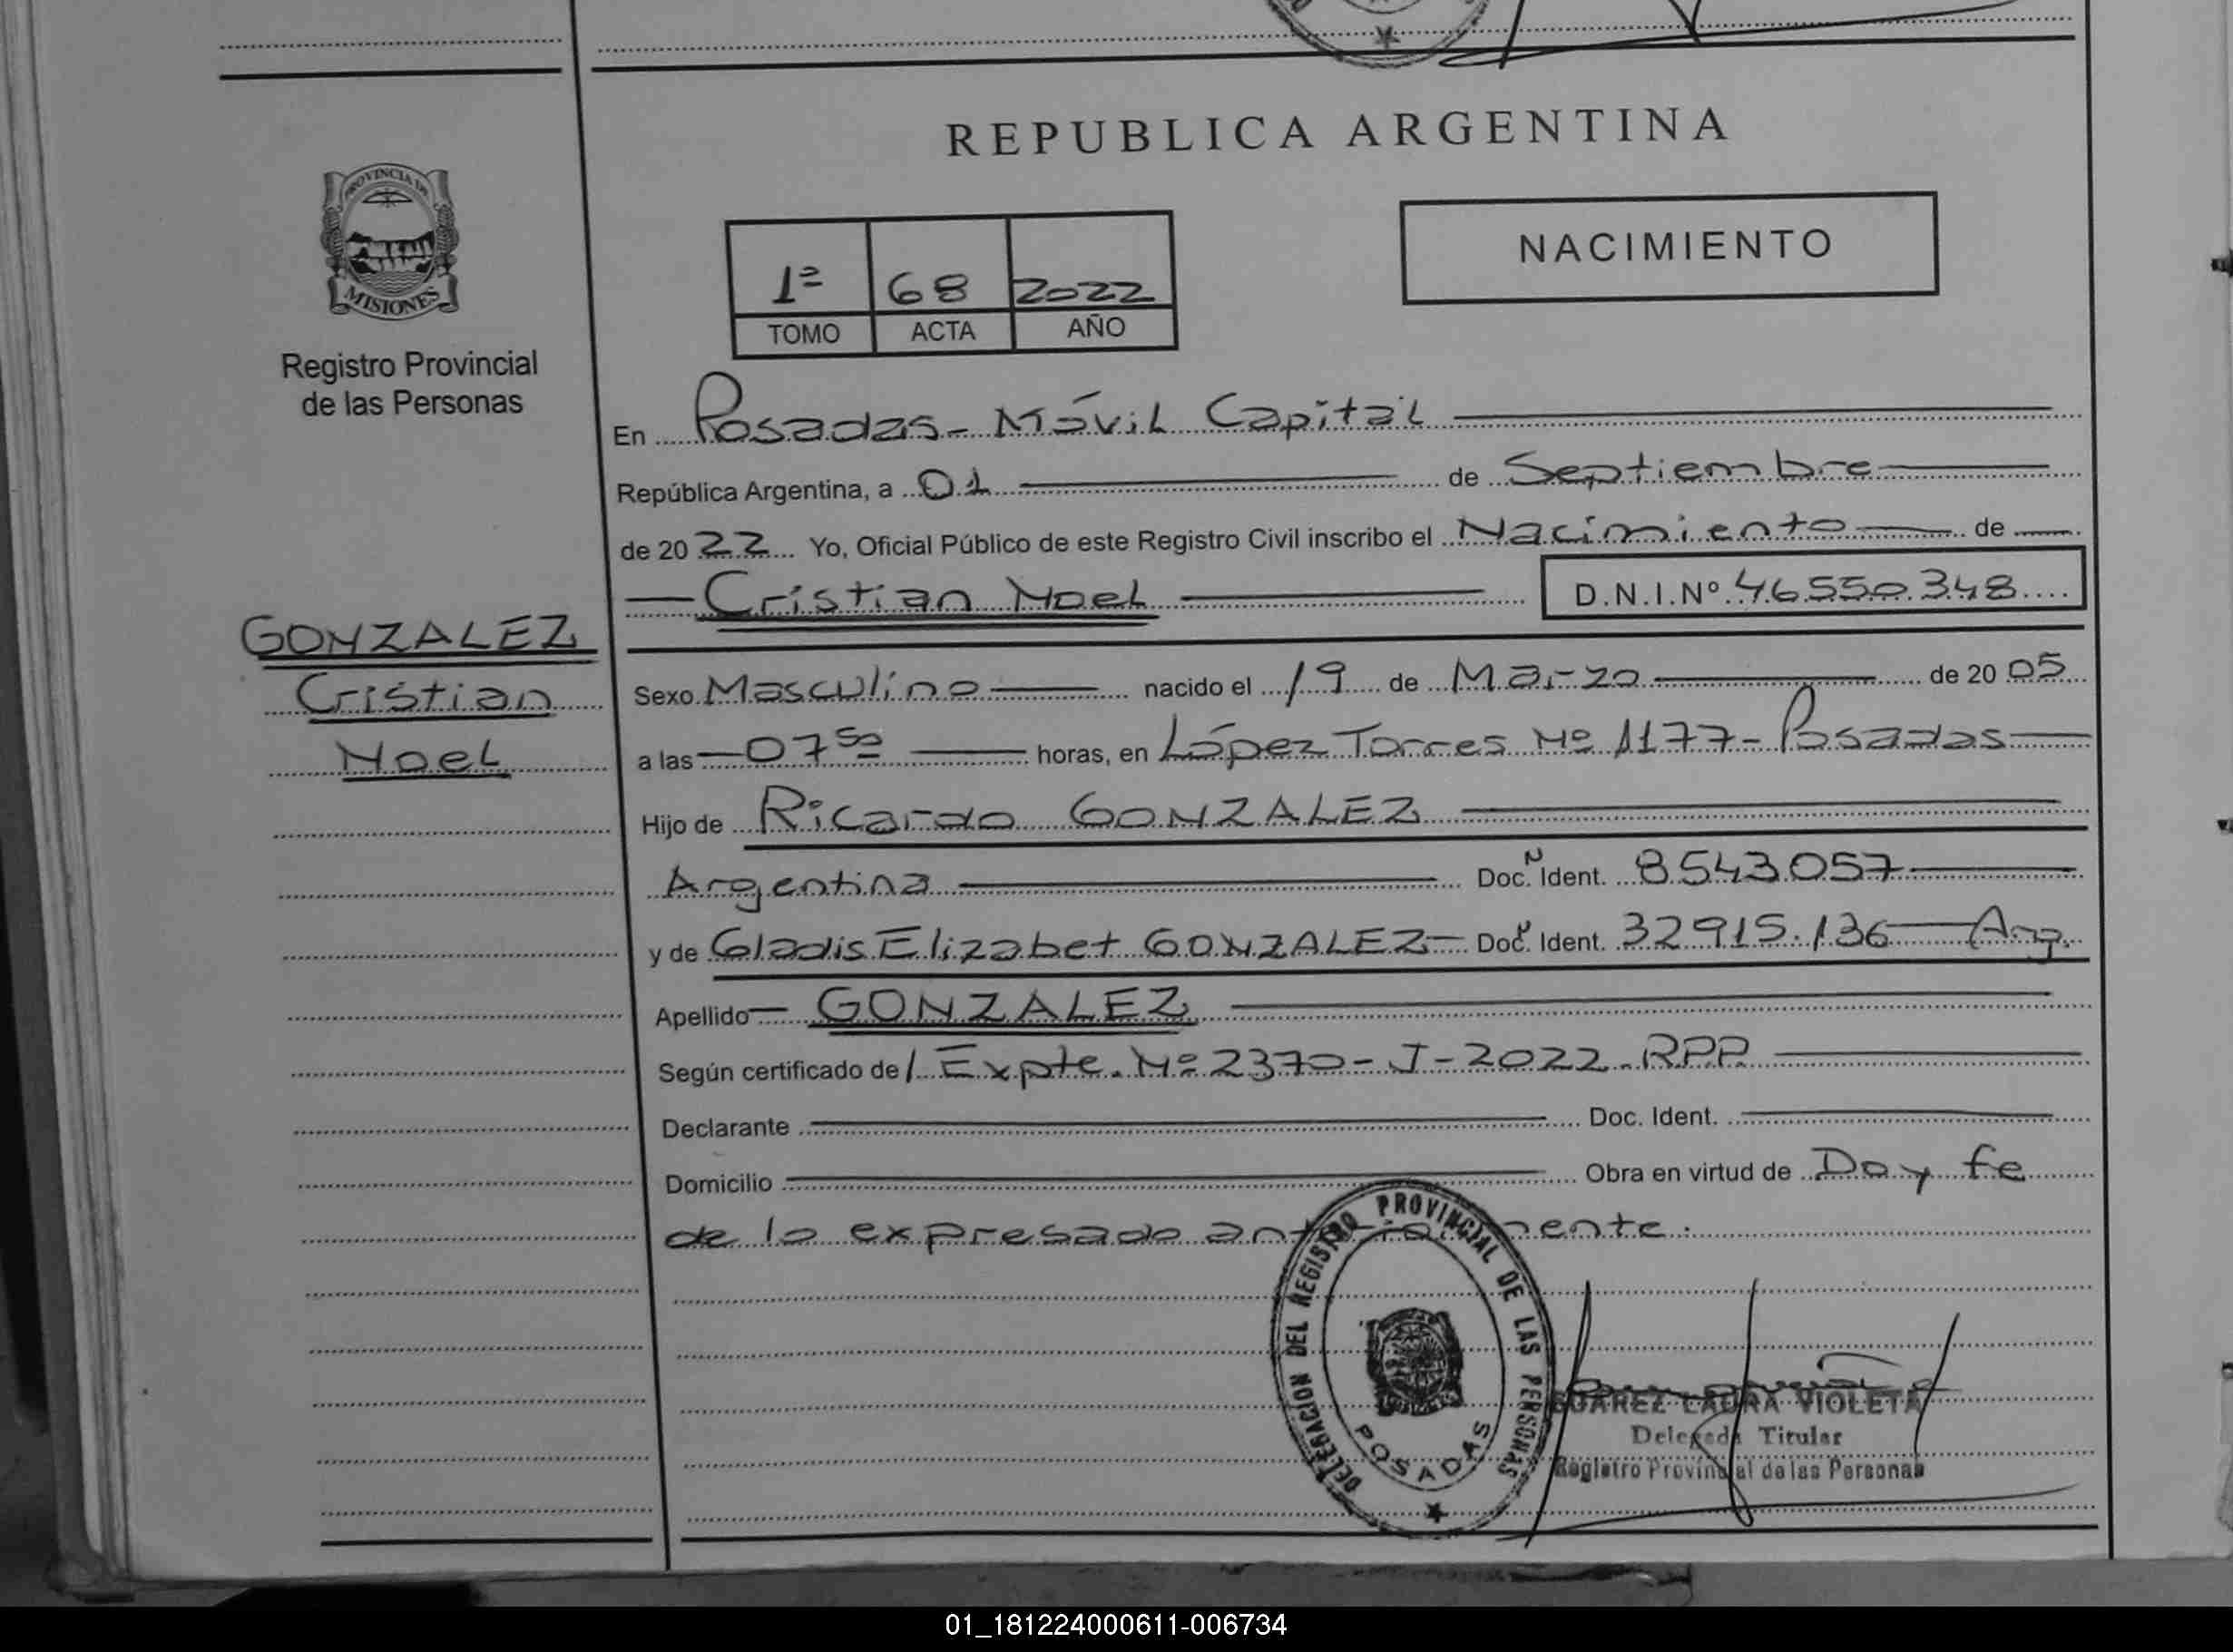 REPUBLICA ARGENTINA
PROVINCIA DE
MISIONES
Registro Provincial
de las Personas
NACIMIENTO
1ª 68 2022
TOMO ACTA AÑO
En Posadas - Móvil Capital
República Argentina, a 01 de Septiembre
de 2022 Yo, Oficial Público de este Registro Civil inscribo el Nacimiento de
Cristian Noel D.N.I.Nº 46.550.348
GONZALEZ
Cristian
Noel
Sexo Masculino nacido el 19 de Marzo de 2005
a las 07 50 horas, en López Torres Nº 1177 - Posadas
Hijo de Ricardo GONZALEZ
Argentina Doc. Ident. 8.543.057
y de Gladis Elizabet GONZALEZ - Doc. Ident. 32.915.136 - Arg.
Apellido GONZALEZ
Según certificado de / Expte. Nº 2370 - J - 2022 - RPP
Declarante Doc. Ident.
Domicilio Obra en virtud de Doy fe
de lo expresado anteriormente.
DELEGACION DEL REGISTRO PROVINCIAL DE LAS PERSONAS
POSADAS
SUAREZ LAURA VIOLETA
Delegada Titular
Registro Provincial de las Personas
01_181224000611-006734